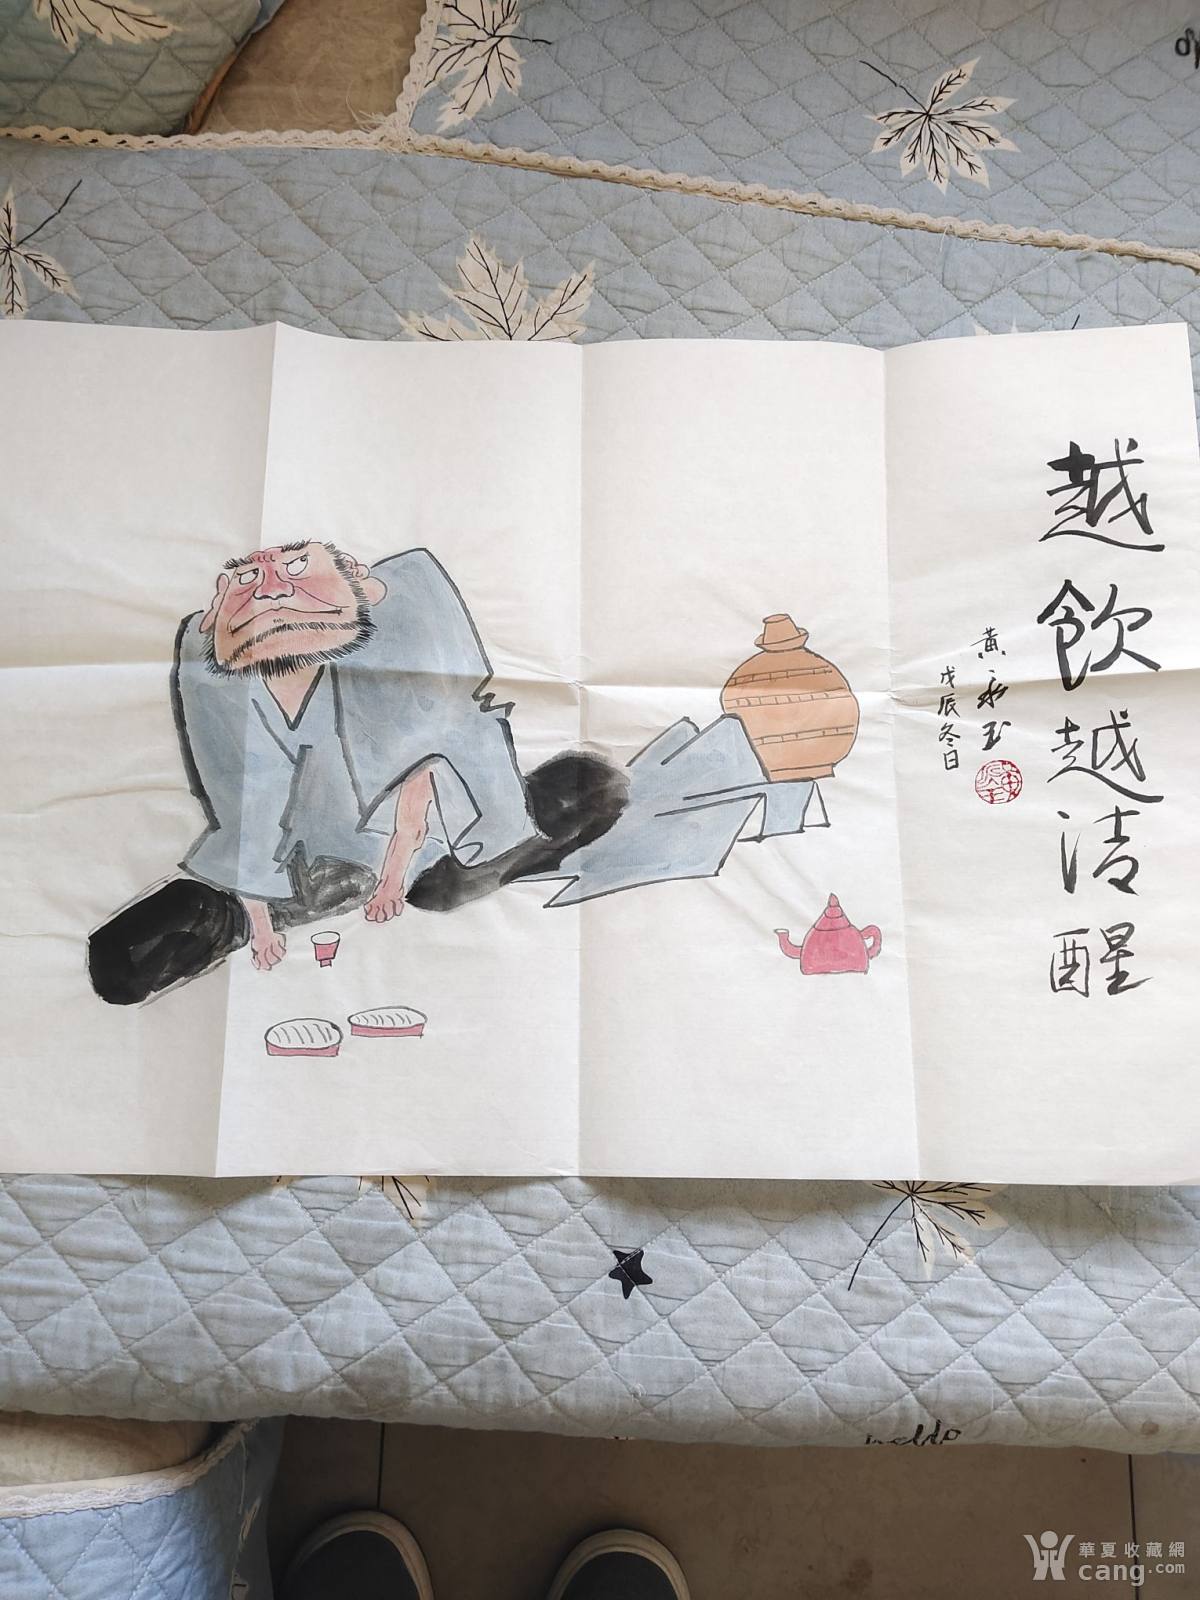 越飲越清醒
黄永玉
戊辰冬日
華夏收藏網
cang.com